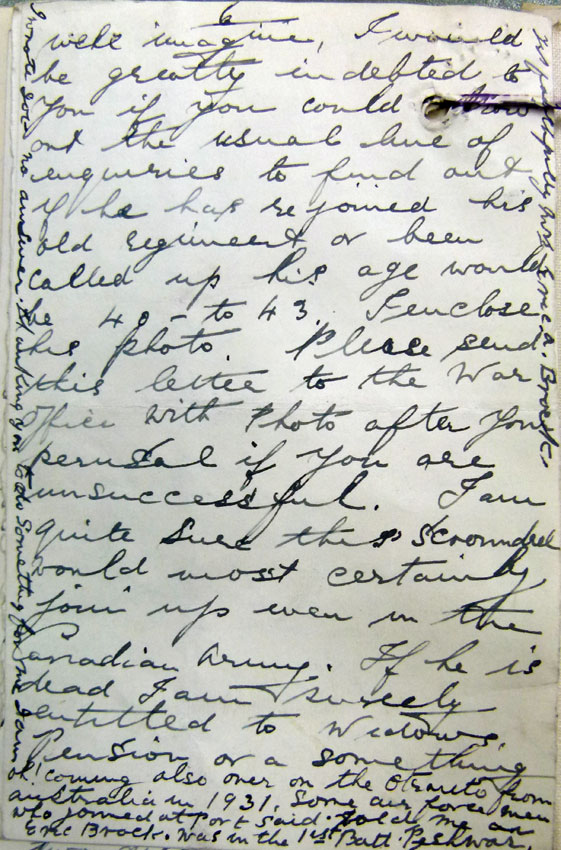 6
well imagine, I would
be greatly indebted to
you if you could throw
out the usual line of
enquiries to find out
if he has rejoined his
old regiment or been
called up his age would
be 40 - to 43. I enclose
his photo. Please send
this letter to the War
Office with Photo after your
perusal if you are
unsuccessful. I am
quite sure this scroundrel
would most certainly
join up even in the
Canadian Army. If he is
dead I am surely
entitled to Widows
Pension or a something
oh! coming also over on the Otranto from
australia in 1931. Some air force men
who joined at Port Said. told me an
Eric Brock. was in the 1st Batt. Peshwar.
I wrote no answer. thanking you to do something for me I am
respectfully Mrs Brock.